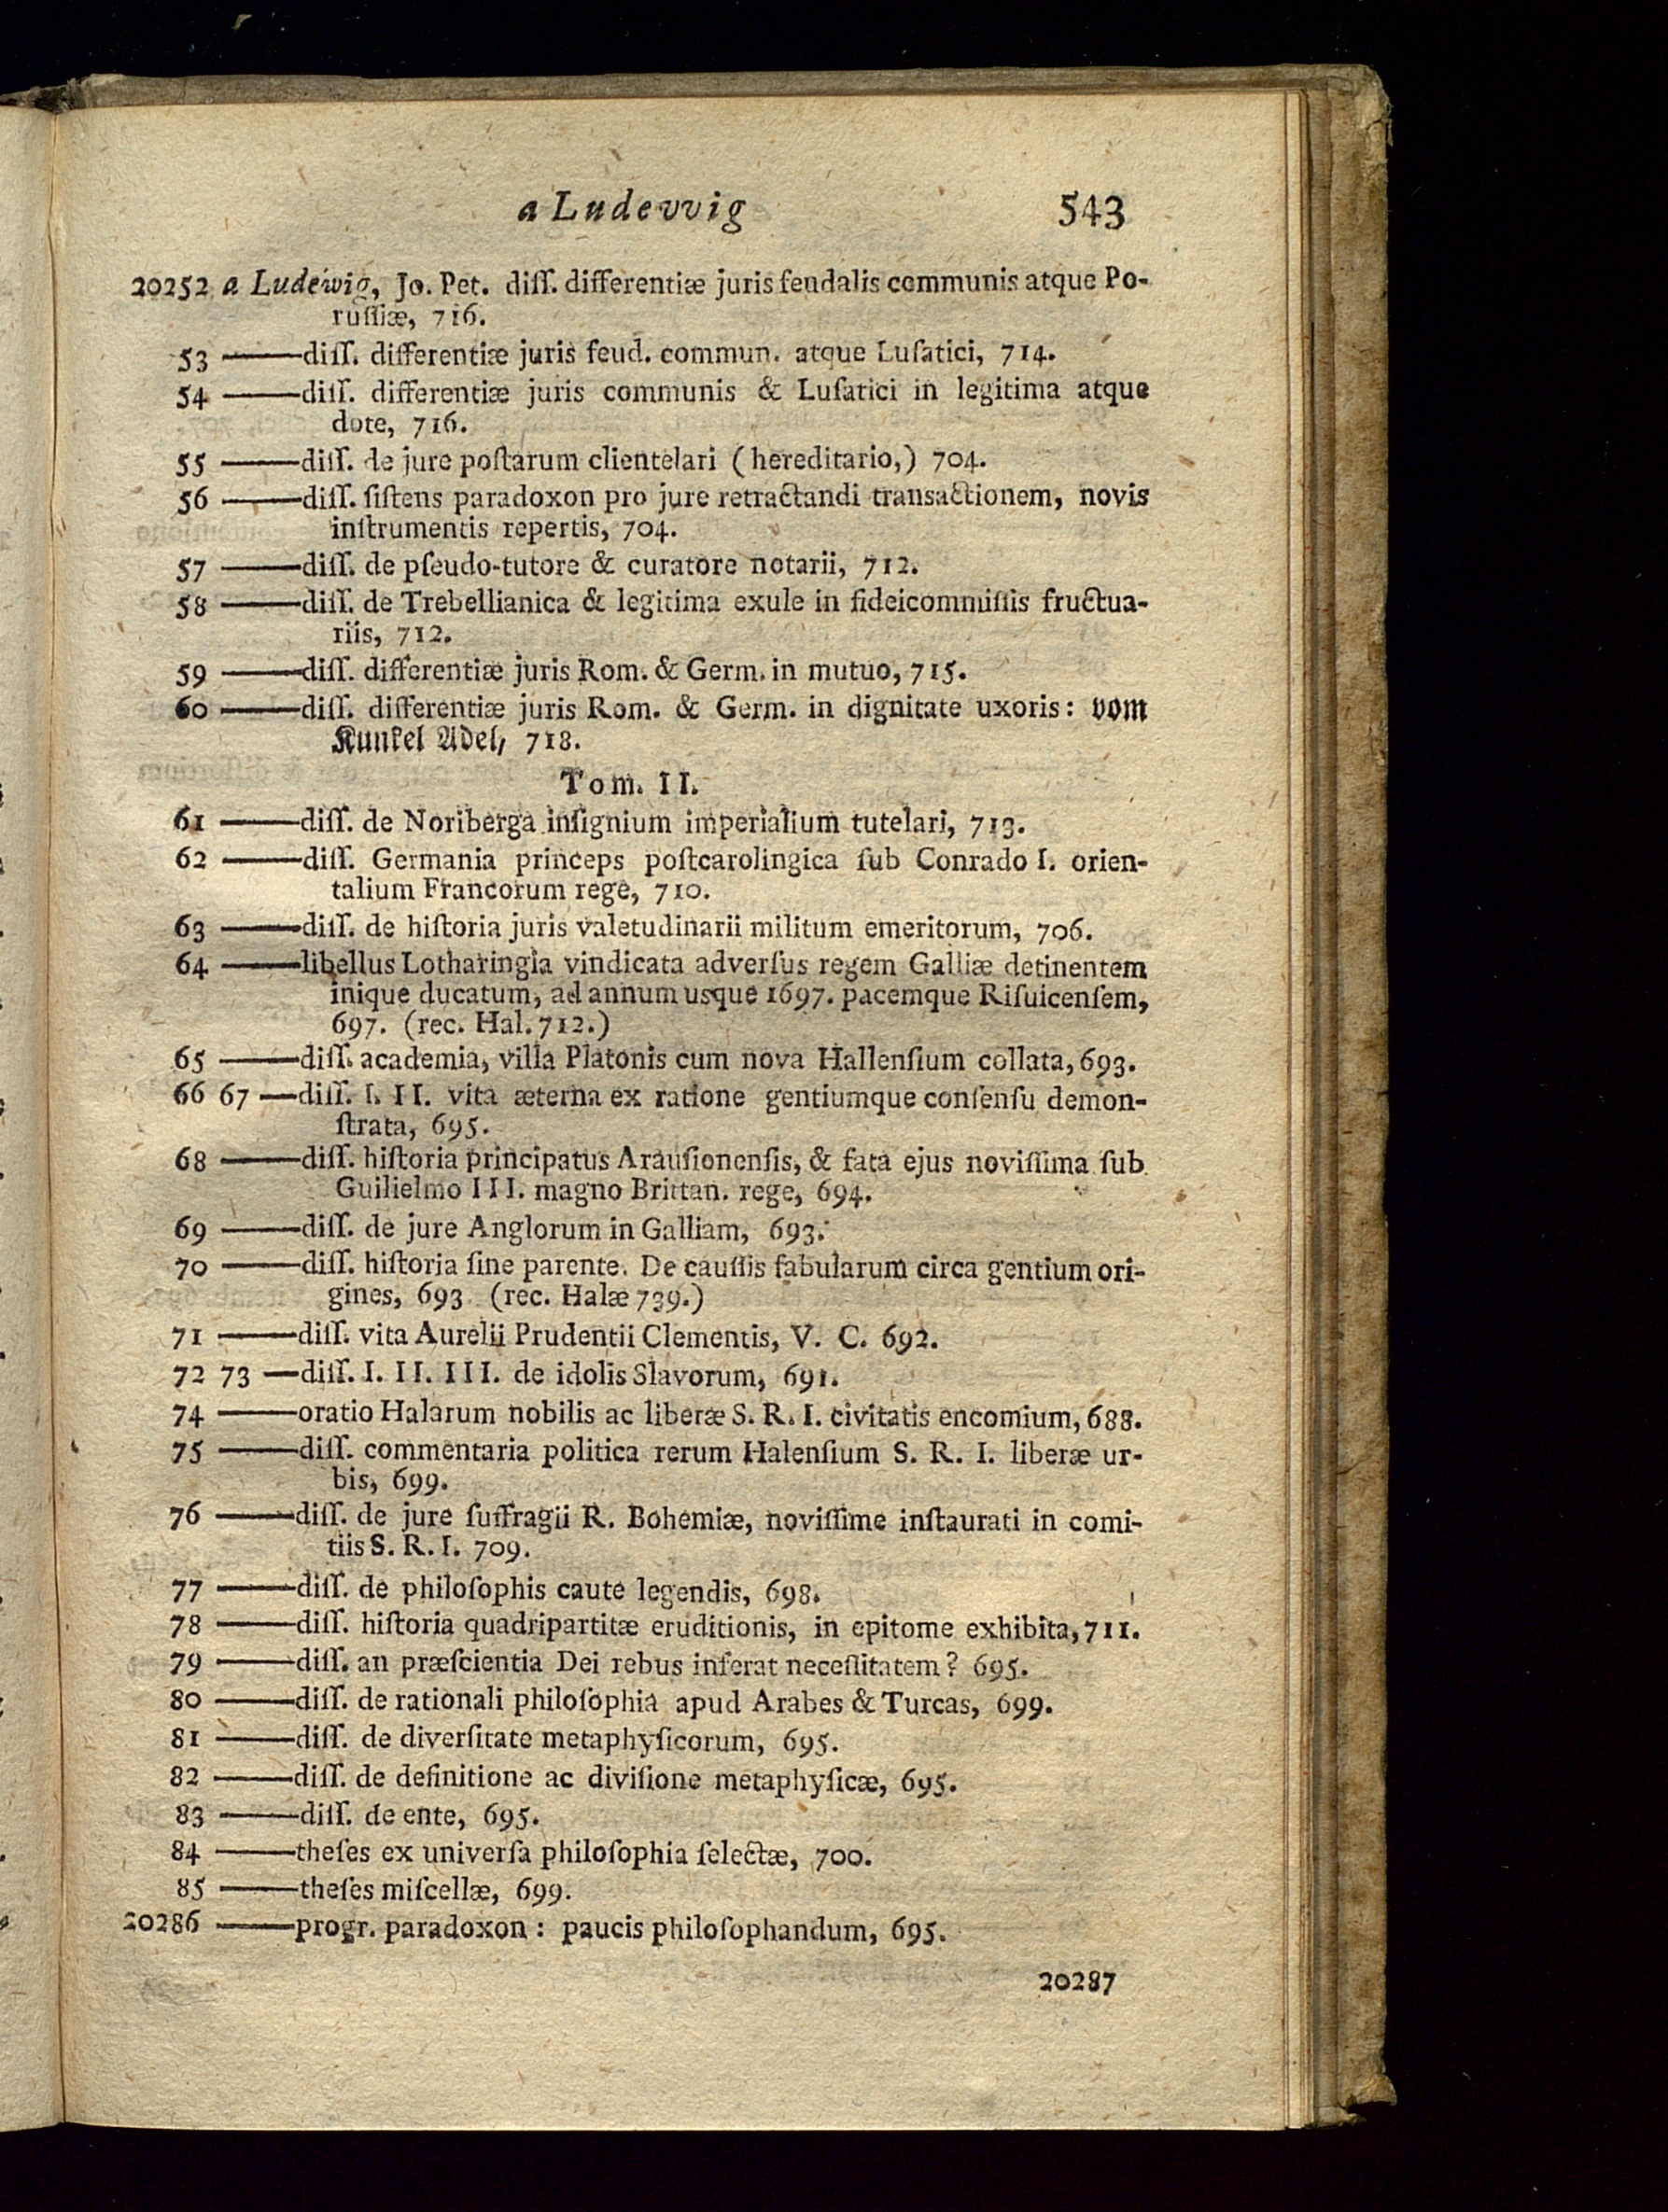 a Ludevvig 543
20252 a Ludewig, Jo. Pet. diſſ. differentiæ juris feudalis communis atque Po-
ruſſiæ, 716.
53 ——diſſ. differentiæ juris feud. commun. atque Luſatici, 714.
54 ——diſſ. differentiæ juris communis & Luſatici in legitima atque
dote, 716.
55 ——diſſ. de jure poſtarum clientelari (hereditario,) 704.
56 ——diſſ. ſiſtens paradoxon pro jure retractandi transactionem, novis
inſtrumentis repertis, 704.
57 ——diſſ. de pſeudo-tutore & curatore notarii, 712.
58 ——diſſ. de Trebellianica & legitima exule in fideicommiſſis fructua-
riis, 712.
59 ——diſſ. differentiæ juris Rom. & Germ. in mutuo, 715.
60 ——diſſ. differentiæ juris Rom. & Germ. in dignitate uxoris: vom
Kunkel Adel, 718.
Tom. II.
61 ——diſſ. de Noriberga inſignium imperialium tutelari, 713.
62 ——diſſ. Germania princeps poſtcarolingica ſub Conrado I. orien-
talium Francorum rege, 710.
63 ——diſſ. de hiſtoria juris valetudinarii militum emeritorum, 706.
64 ——libellus Lotharingia vindicata adverſus regem Galliæ detinentem
inique ducatum, ad annum usque 1697. pacemque Riſuicenſem,
697. (rec. Hal. 712.)
65 ——diſſ. academia, villa Platonis cum nova Hallenſium collata, 693.
66 67 —diſſ. I. II. vita æterna ex ratione gentiumque conſenſu demon-
ſtrata, 695.
68 ——diſſ. hiſtoria principatus Arauſionenſis, & fata ejus noviſſima ſub
Guilielmo III. magno Brittan. rege, 694.
69 ——diſſ. de jure Anglorum in Galliam, 693.
70 ——diſſ. hiſtoria ſine parente. De cauſſis fabularum circa gentium ori-
gines, 693. (rec. Halæ 739.)
71 ——diſſ. vita Aurelii Prudentii Clementis, V. C. 692.
72 73 —diſſ. I. II. III. de idolis Slavorum, 691.
74 ——oratio Halarum nobilis ac liberæ S. R. I. civitatis encomium, 688.
75 ——diſſ. commentaria politica rerum Halenſium S. R. I. liberæ ur-
bis, 699.
76 ——diſſ. de jure ſuffragii R. Bohemiæ, noviſſime inſtaurati in comi-
tiis S. R. I. 709.
77 ——diſſ. de philoſophis caute legendis, 698.
78 ——diſſ. hiſtoria quadripartitæ eruditionis, in epitome exhibita, 711.
79 ——diſſ. an præſcientia Dei rebus inferat neceſſitatem? 695.
80 ——diſſ. de rationali philoſophia apud Arabes & Turcas, 699.
81 ——diſſ. de diverſitate metaphyſicorum, 695.
82 ——diſſ. de definitione ac diviſione metaphyſicæ, 695.
83 ——diſſ. de ente, 695.
84 ——theſes ex univerſa philoſophia ſelectæ, 700.
85 ——theſes miſcellæ, 699.
20286 ——progr. paradoxon: paucis philoſophandum, 695.
20287